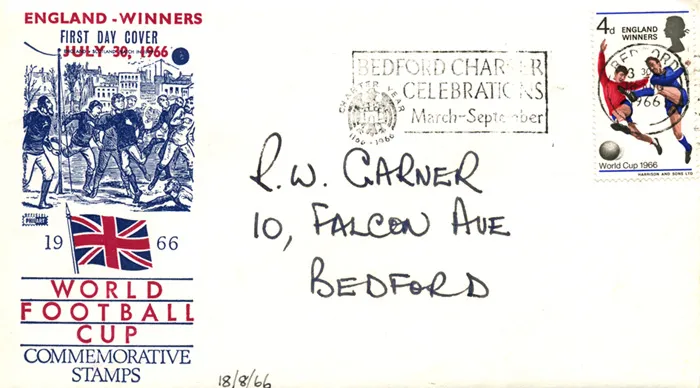 ENGLAND - WINNERS
FIRST DAY COVER
JULY 30, 1966
19 66
WORLD
FOOTBALL
CUP
COMMEMORATIVE
STAMPS
BEDFORD CHARTER
CELEBRATIONS
March-September
CHARTER YEAR
1166-1966
4d ENGLAND
WINNERS
BEDFORD
1966
World Cup 1966
HARRISON AND SONS LTD
R.W. GARNER
10, FALCON AVE
BEDFORD
18/8/66